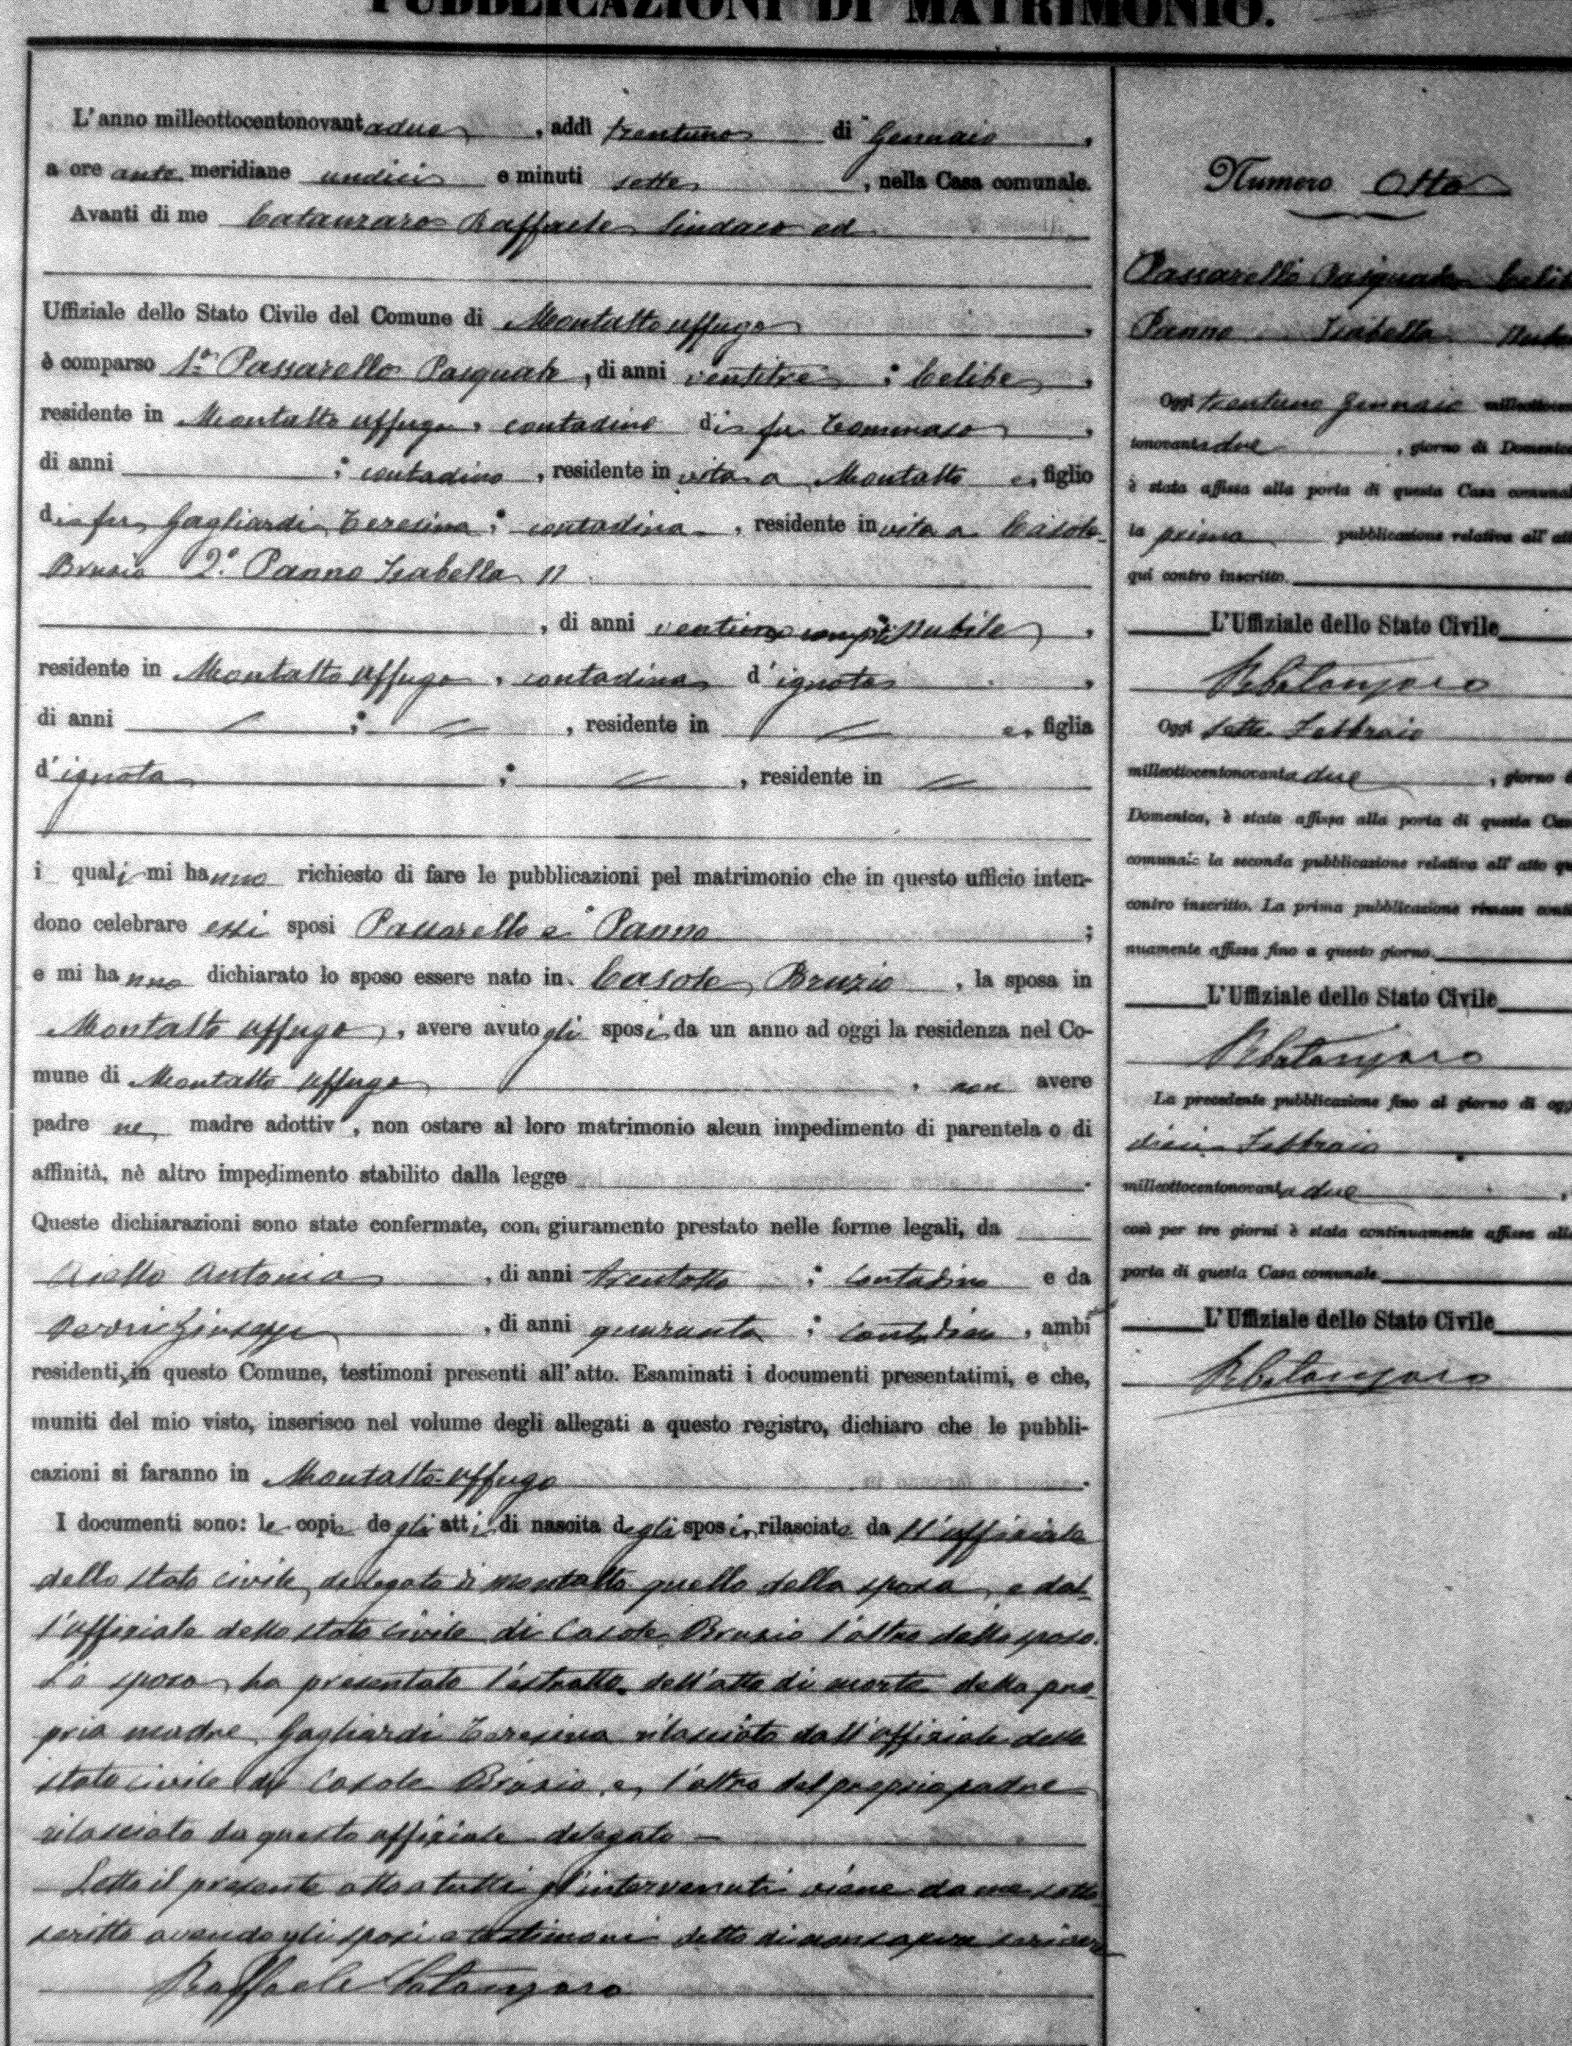 PUBBLICAZIONI DI MATRIMONIO.
L'anno milleottocentonovantadue, addì trentuno di Gennaio,
a ore ante meridiane undici e minuti sette, nella Casa comunale.
Avanti di me Catanzaro Raffaele Sindaco ed
Uffiziale dello Stato Civile del Comune di Montalto Uffugo,
è comparso 1º Passarello Pasquale, di anni ventitre; Celibe,
residente in Montalto Uffugo, contadino di fu Tommaso,
di anni ; contadino, residente in vita a Montalto e, figlio
di fu Gagliardi Teresina; contadina, residente in vita a Casole
Bruzio 2º Panno Isabella
, di anni ventuno compiti nubile,
residente in Montalto Uffugo, contadina d'ignoto,
di anni ; , residente in e, figlia
d'ignota ; , residente in
i quali mi hanno richiesto di fare le pubblicazioni pel matrimonio che in questo ufficio inten-
dono celebrare essi sposi Passarello e Panno ;
e mi hanno dichiarato lo sposo essere nato in Casole Bruzio, la sposa in
Montalto Uffugo, avere avuto gli sposi da un anno ad oggi la residenza nel Co-
mune di Montalto Uffugo, non avere
padre ne madre adottiv , non ostare al loro matrimonio alcun impedimento di parentela o di
affinità, nè altro impedimento stabilito dalla legge .
Queste dichiarazioni sono state confermate, con giuramento prestato nelle forme legali, da
Aiello Antonio, di anni trentotto; contadino e da
Giuseppe, di anni quaranta; contadino, ambi
residenti in questo Comune, testimoni presenti all'atto. Esaminati i documenti presentatimi, e che,
muniti del mio visto, inserisco nel volume degli allegati a questo registro, dichiaro che le pubbli-
cazioni si faranno in Montalto Uffugo.
I documenti sono: le copie degli atti di nascita degli sposi, rilasciate dall'uffiziale
dello stato civile delegato di Montalto quello della sposa, e dal-
l'uffiziale dello stato civile di Casole Bruzio l'altro dello sposo.
Lo sposo ha presentato l'estratto dell'atto di morte della pro-
pria madre Gagliardi Teresina rilasciato dall'uffiziale dello
stato civile di Casole Bruzio e, l'altro del proprio padre
rilasciato da questo uffiziale delegato —
Letto il presente atto a tutti gl'intervenuti viene da me sotto-
scritto avendo gli sposi e testimoni detto di non sapere scrivere
Raffaele Catanzaro
Numero Otto
Passarello Pasquale Celib
Panno Isabella Nub
Oggi trentuno Gennaio milleottocen
tonovantadue, giorno di Domenica
è stata affissa alla porta di questa Casa comunal
la prima pubblicazione relativa all'att
qui contro inscritto.
L'Uffiziale dello Stato Civile
R Catanzaro
Oggi sette Febbraio
milleottocentonovantadue, giorno d
Domenica, è stata affissa alla porta di questa Cas
comunale la seconda pubblicazione relativa all'atto qu
contro inscritto. La prima pubblicazione rimase conti
nuamente affissa fino a questo giorno.
L'Uffiziale dello Stato Civile
R Catanzaro
La precedente pubblicazione fino al giorno di ogg
dieci Febbraio
milleottocentonovantadue,
così per tre giorni è stata continuamente affissa alla
porta di questa Casa comunale.
L'Uffiziale dello Stato Civile
R Catanzaro